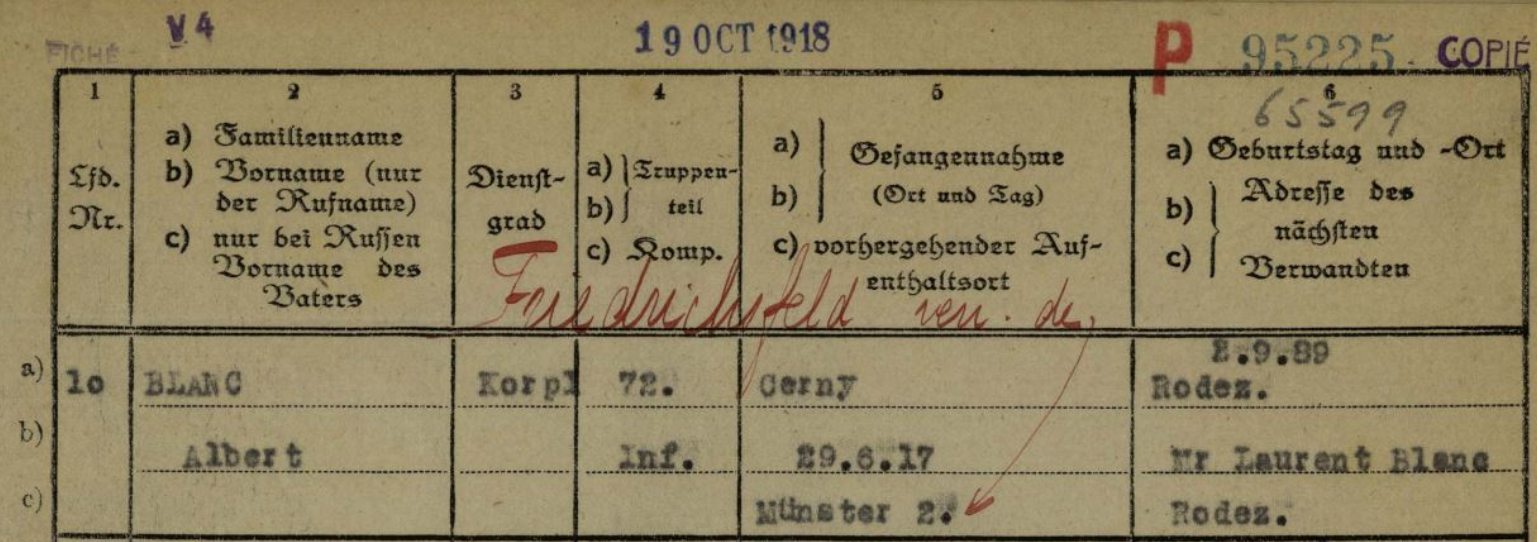 FICHÉ V4 19 OCT 1918 P 95225 COPIÉ
1 2 3 4 5 6
65599
Lfd. Nr.
a) Familienname
b) Vorname (nur
der Rufname)
c) nur bei Russen
Vorname des
Vaters
Dienst-
grad
a) Truppen-
b) teil
c) Komp.
a) Gefangennahme
b) (Ort und Tag)
c) vorhergehender Auf-
enthaltsort
a) Geburtstag und -Ort
b) Adresse des
nächsten
c) Verwandten
Friedrichsfeld ven. de
2.9.89
a) 10 BLANC Korpl 72. Cerny Rodez.
b) Albert Inf. 29.6.17 Mr Laurent Blanc
c) Münster 2. Rodez.